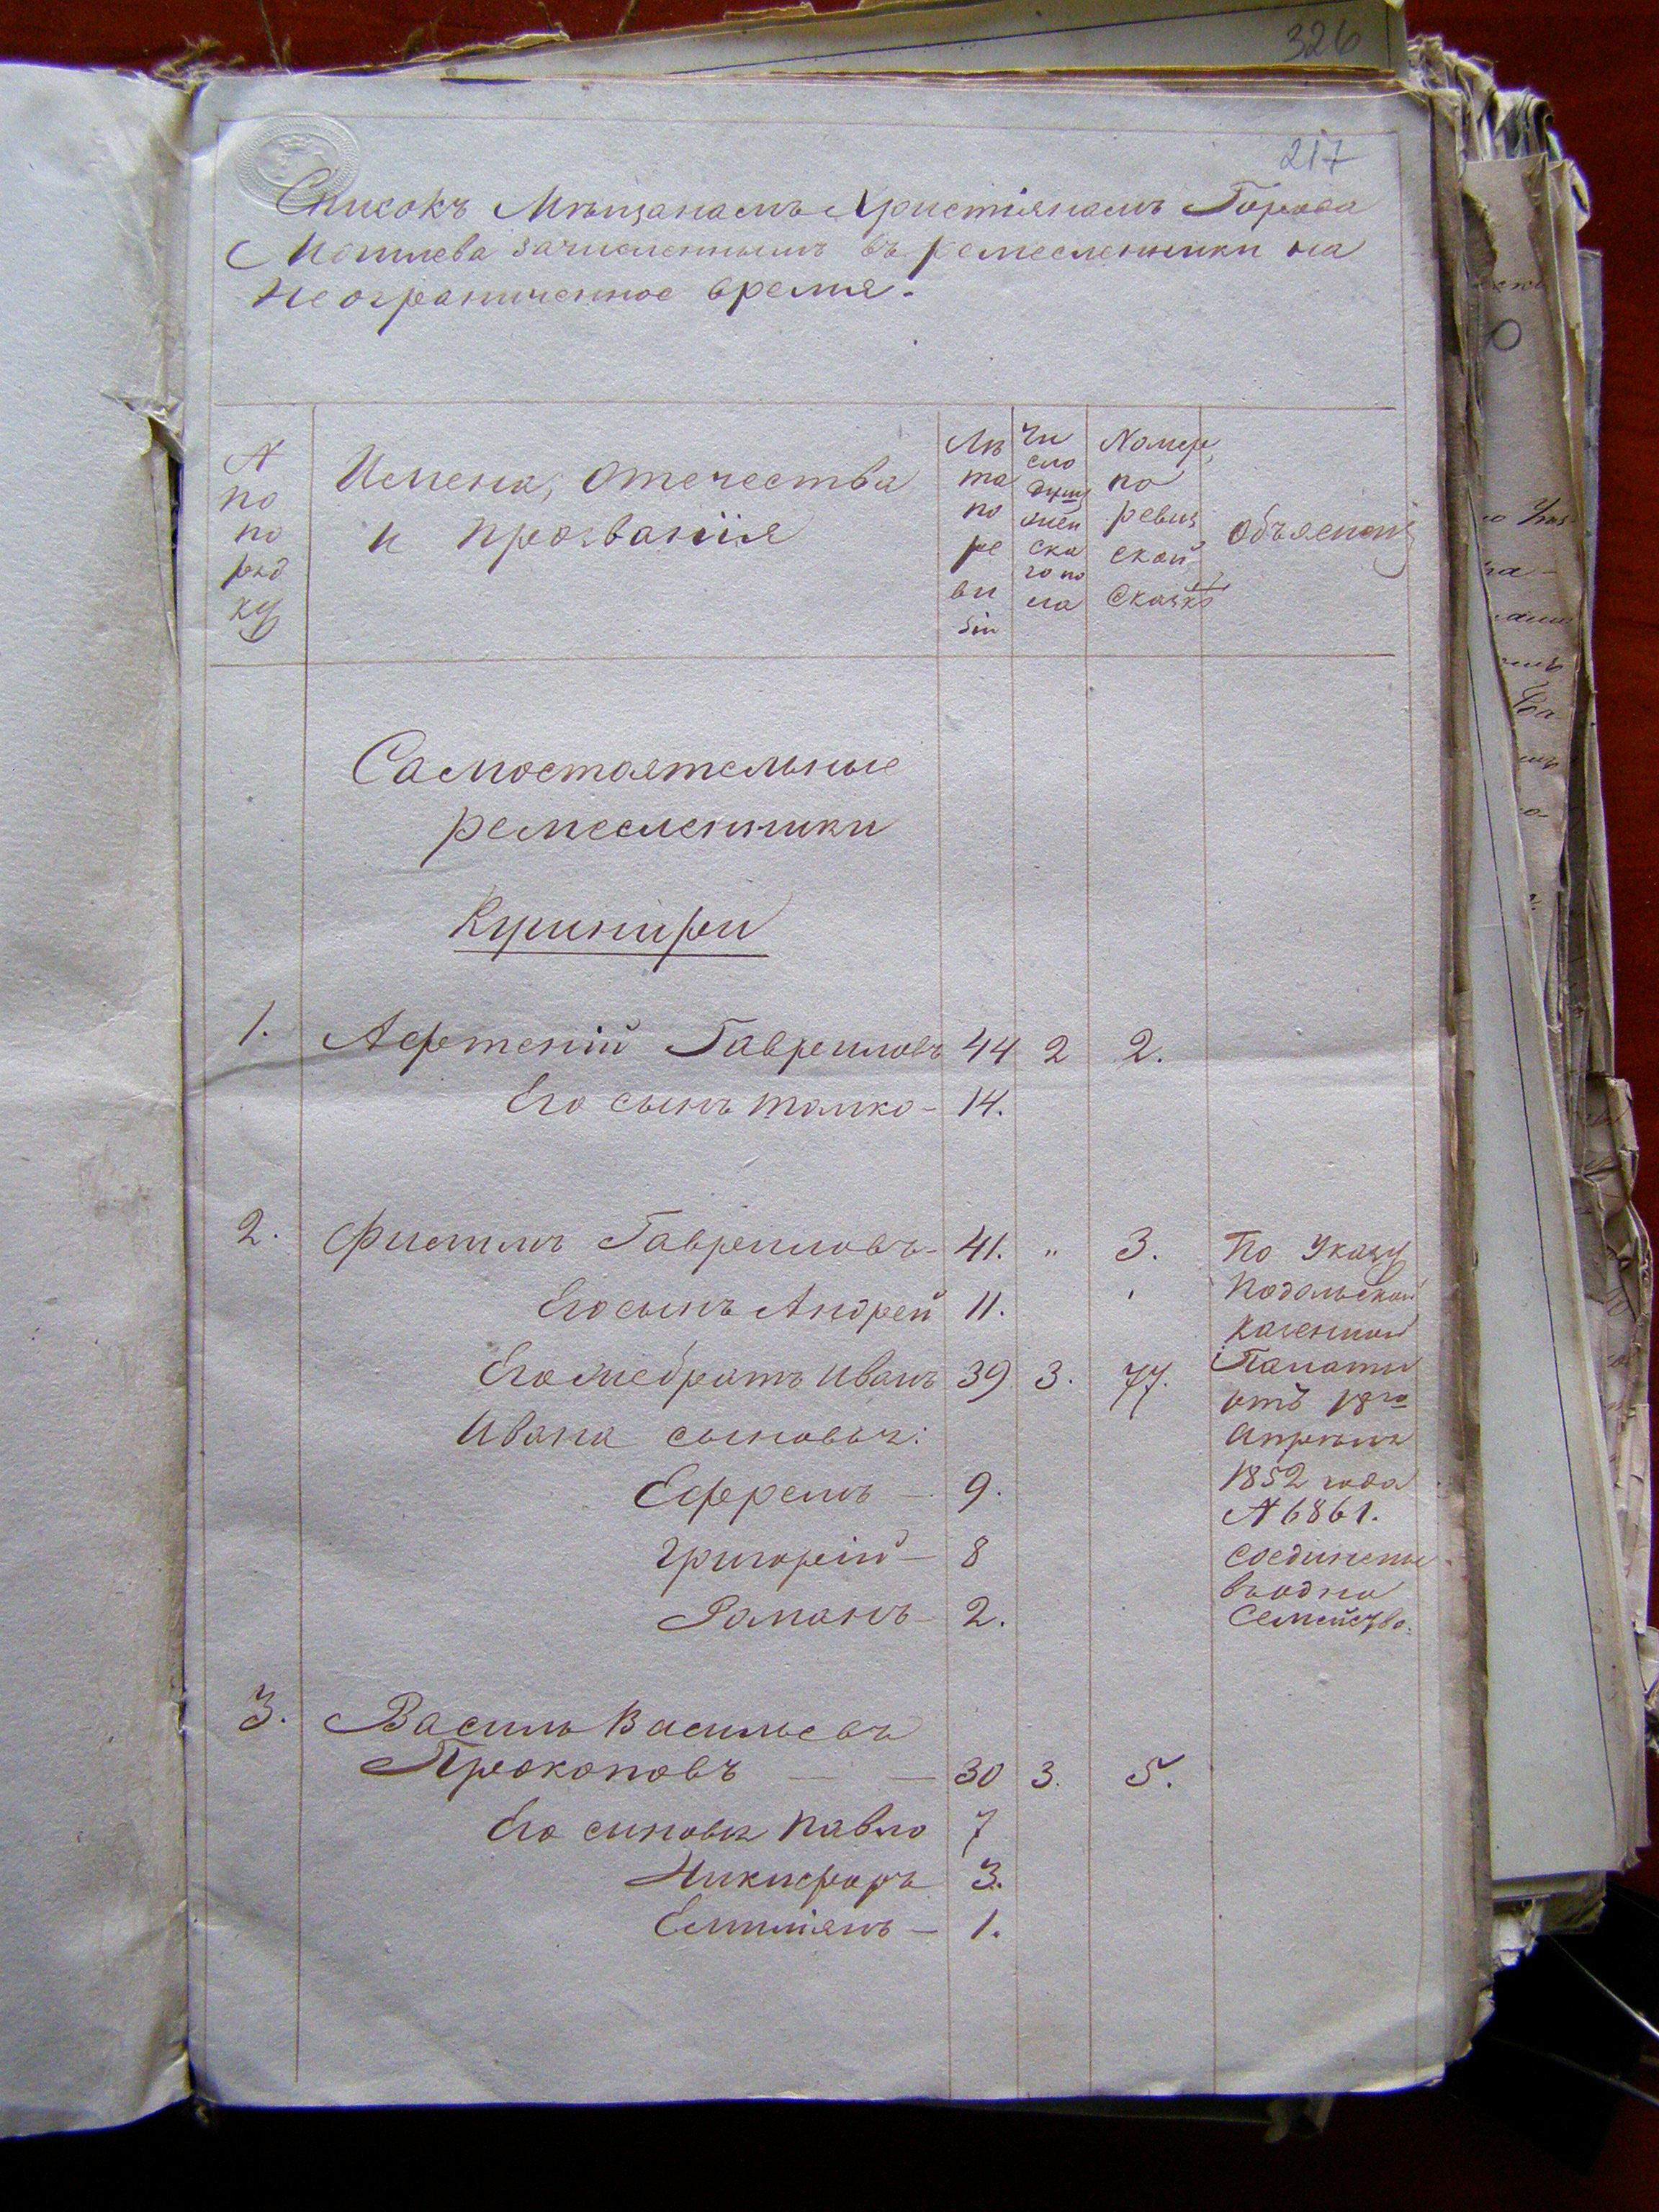 326
217
Списокъ Мѣщанамъ Христіянамъ Города
Могилева зачисленнымъ въ ремесленники на
неограниченное время.
№ по порядку
Имена, отечества и прозванія
Лѣта по ревизіи
Число душ мужеска го пола
Номер, по ревизской сказкѣ
Объясненій
Самостоятельные
ремесленники
Кушнири
1. Афтеній Гавриловъ 44 2 2.
Его сынъ Томко - 14.
2. Филипъ Гавриловъ - 41. „ 3. По Указу
Его сынъ Андрей 11. Подольской
Казенной
Его же братъ Иванъ 39 3. 77. Палаты
отъ 18го
Ивана сыновья: Апрѣля
Ефремъ - 9. 1852 года
№ 6861.
Григорій - 8 соединены
въ одно
Романъ - 2. Семейство.
3. Василь Васильевъ
Прокоповъ — — 30 3. 5.
Его сыновья Павло 7
Никифоръ 3.
Емилiянъ - 1.